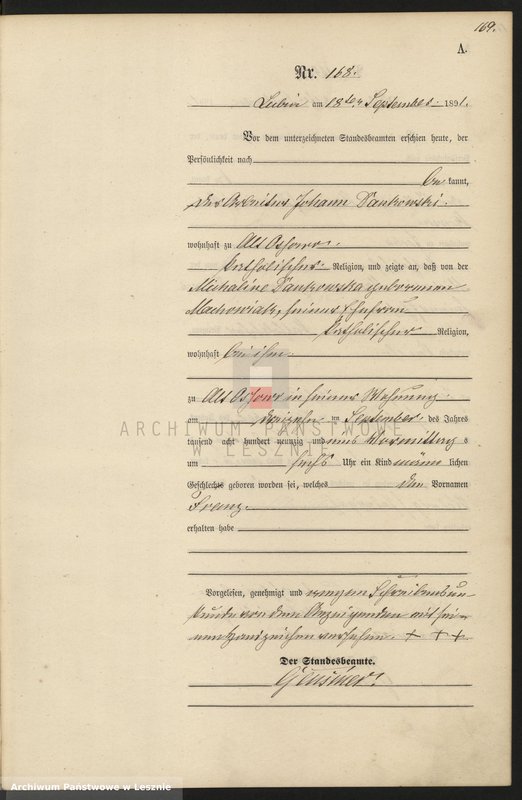 169.
A.
Nr. 168.
Lubin am 18ten September 1891.
Vor dem unterzeichneten Standesbeamten erschien heute, der
Persönlichkeit nach
be kannt,
der Arbeiter Johann Dankowski
wohnhaft zu Alt
katholischer Religion, und zeigte an, daß von der
Michaline Dankowska geborenen
seiner Ehefrau
katholischer Religion,
wohnhaft bei ihm
zu Alt in seiner Wohnung
am dreizehn ten September des Jahres
tausend acht hundert neunzig und eins Vormittag s
um sechs Uhr ein Kind männ lichen
Geschlechts geboren worden sei, welches den Vornamen
Franz
erhalten habe
Vorgelesen, genehmigt und wegen Schreibensun-
kunde von dem Anzeigenden mit sei-
nem Handzeichen versehen. + + +
Der Standesbeamte.
ARCHIWUM PAŃSTWOWE
W LESZNIE
Archiwum Państwowe w Lesznie